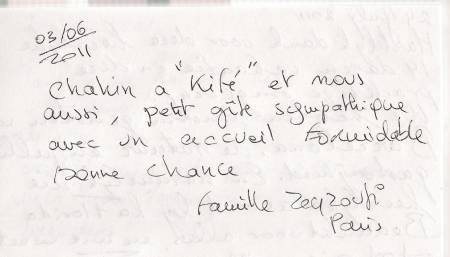 03/06
2011
Chakin a "Kifé" et nous
aussi, petit gîte sympathique
avec un accueil formidable
Bonne chance
Famille
Paris